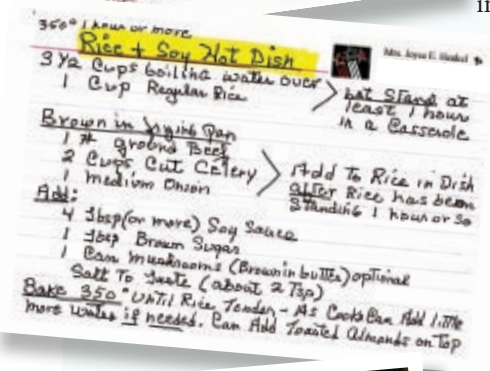 in
350° 1 hour or more
Rice + Soy Hot Dish
Mrs. Joyce E.
3 1/2 Cups boiling water over
1 Cup Regular Rice
Let Stand at
least 1 hour
in a Casserole
Brown in Frying Pan
1 # ground Beef
2 Cups Cut Celery
1 medium Onion
Add To Rice in Dish
after Rice has been
Standing 1 hour or so
Add:
4 Tbsp (or more) Soy Sauce
1 Tbsp Brown Sugar
1 Can mushrooms (Brown in butter) optional
Salt To Taste (about 2 Tsp)
Bake 350° Until Rice Tender - As Cooks Can Add little
more water if needed. Can Add Toasted Almonds on Top